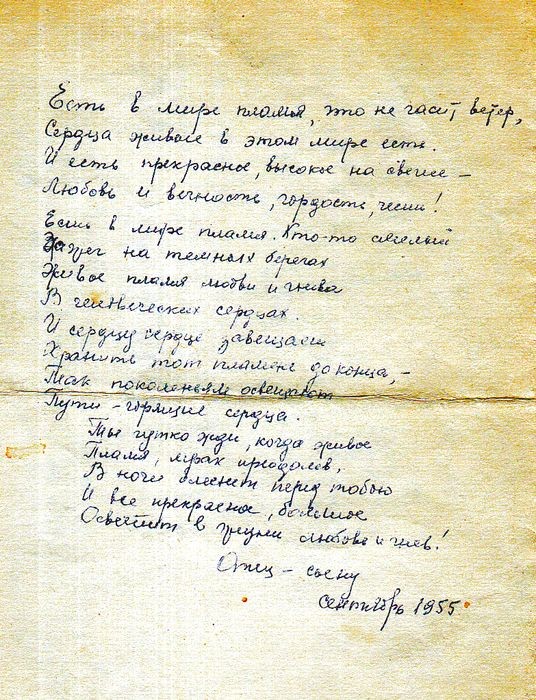 Есть в мире пламя, что не гасит ветер,
Сердца живые в этом мире есть.
И есть прекрасное, высокое на свете —
Любовь и вечность, гордость, честь!
Есть в мире пламя. Кто-то смелый
Зажег на темных берегах
Живое пламя любви и гнева
В человеческих сердцах.
И сердцу сердце завещает
Хранить тот пламень до конца, –
Так поколеньям освещают
Пути – горящие сердца.
Ты чутко жди, когда живое
Пламя, мрак преодолев,
В ночи блеснет перед тобою
И все прекрасное, большое
Осветит в жизни любовь и гнев!
Отец – сыну
Сентябрь 1955